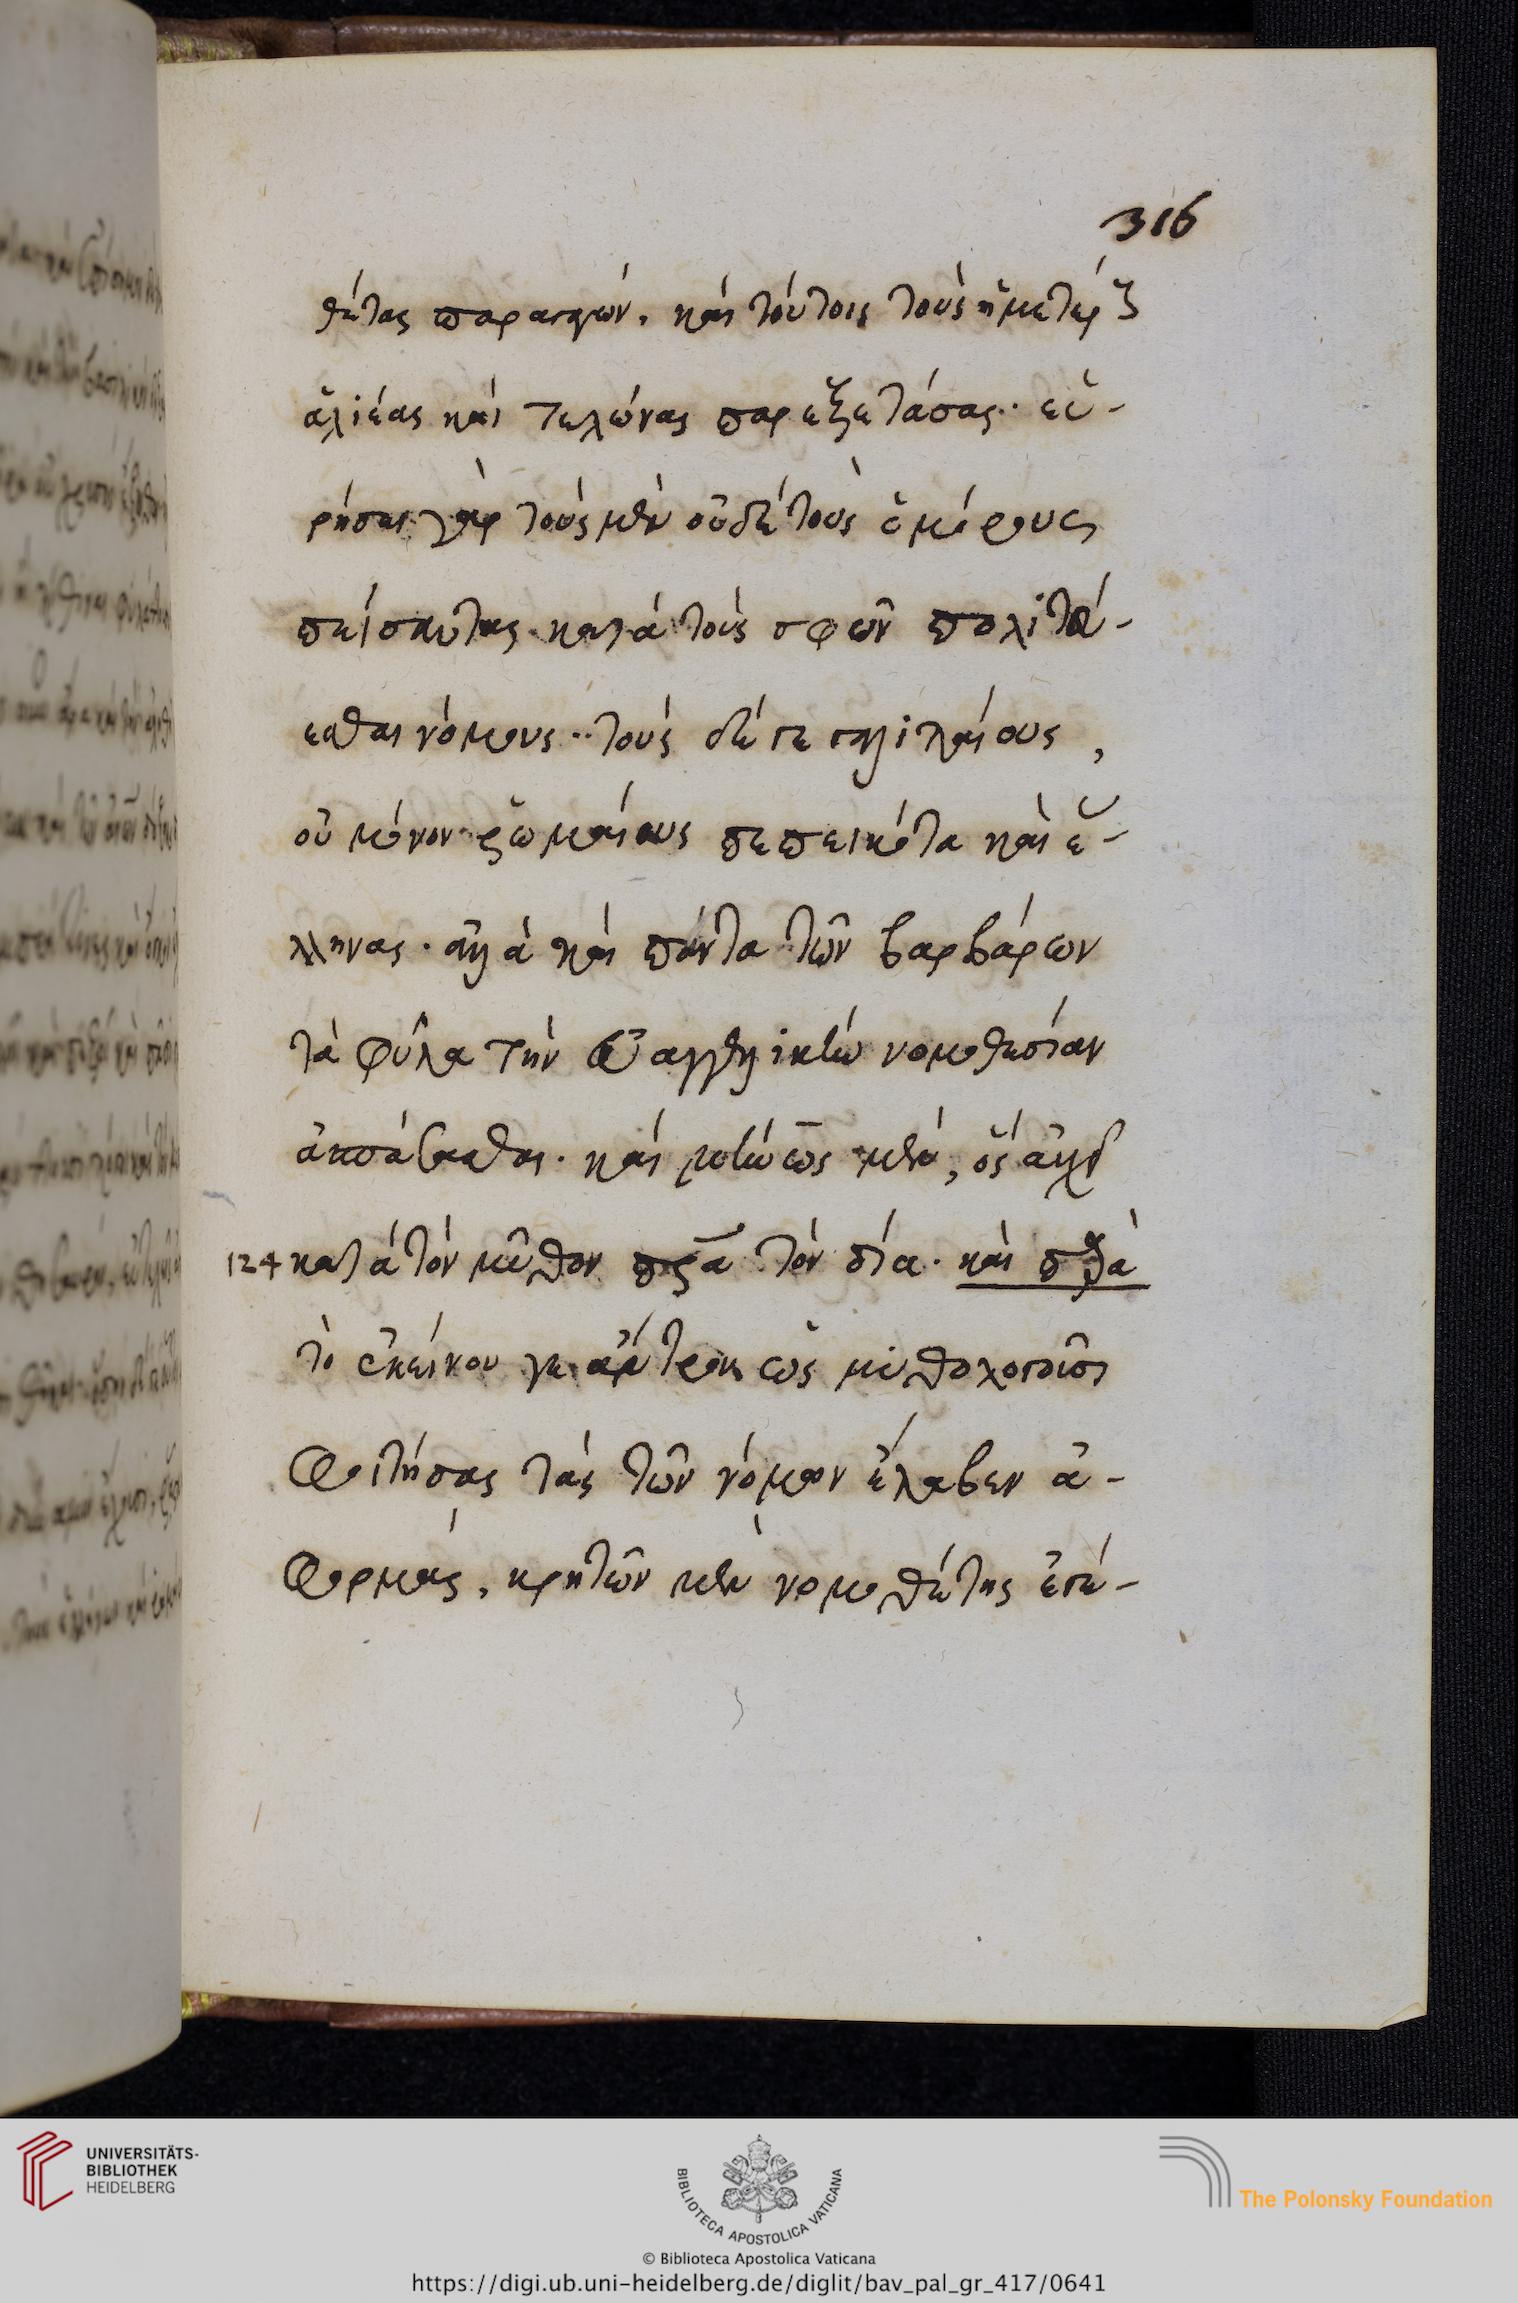 316
θέτας παραγαγών. καὶ τούτοις τοὺς ἡμετέρους
ἁλιέας καὶ τελώνας παρεξετάσας. εὑ-
ρήσει γὰρ τοὺς μὲν οὐδὲ τοὺς ὁμόρους
πείσαντας κατὰ τοὺς σφῶν πολιτεύ-
εσθαι νόμους. τοὺς δὲ γε γαλιλαίους,
οὐ μόνον ῥωμαίους πεπεικότα καὶ ἕ-
λληνας. ἀλλὰ καὶ πάντα τῶν βαρβάρων
τὰ φύλα τὴν εὐαγγελικὴν νομοθεσίαν
ἀσπάσασθαι. καὶ μίνως μέν, ὃς ἦν
124 κατὰ τὸν μῦθον παῖς τοῦ διός. καὶ παρὰ
τὸ ἐκείνου γε ἄντρον ὡς μυθολογοῦσι
φοιτήσας τὰς τῶν νόμων ἔλαβεν ἀ-
φορμάς. κρητῶν μὲν νομοθέτης ἐγέ-
UNIVERSITÄTS-
BIBLIOTHEK
HEIDELBERG
BIBLIOTECA APOSTOLICA VATICANA
The Polonsky Foundation
© Biblioteca Apostolica Vaticana
https://digi.ub.uni-heidelberg.de/diglit/bav_pal_gr_417/0641